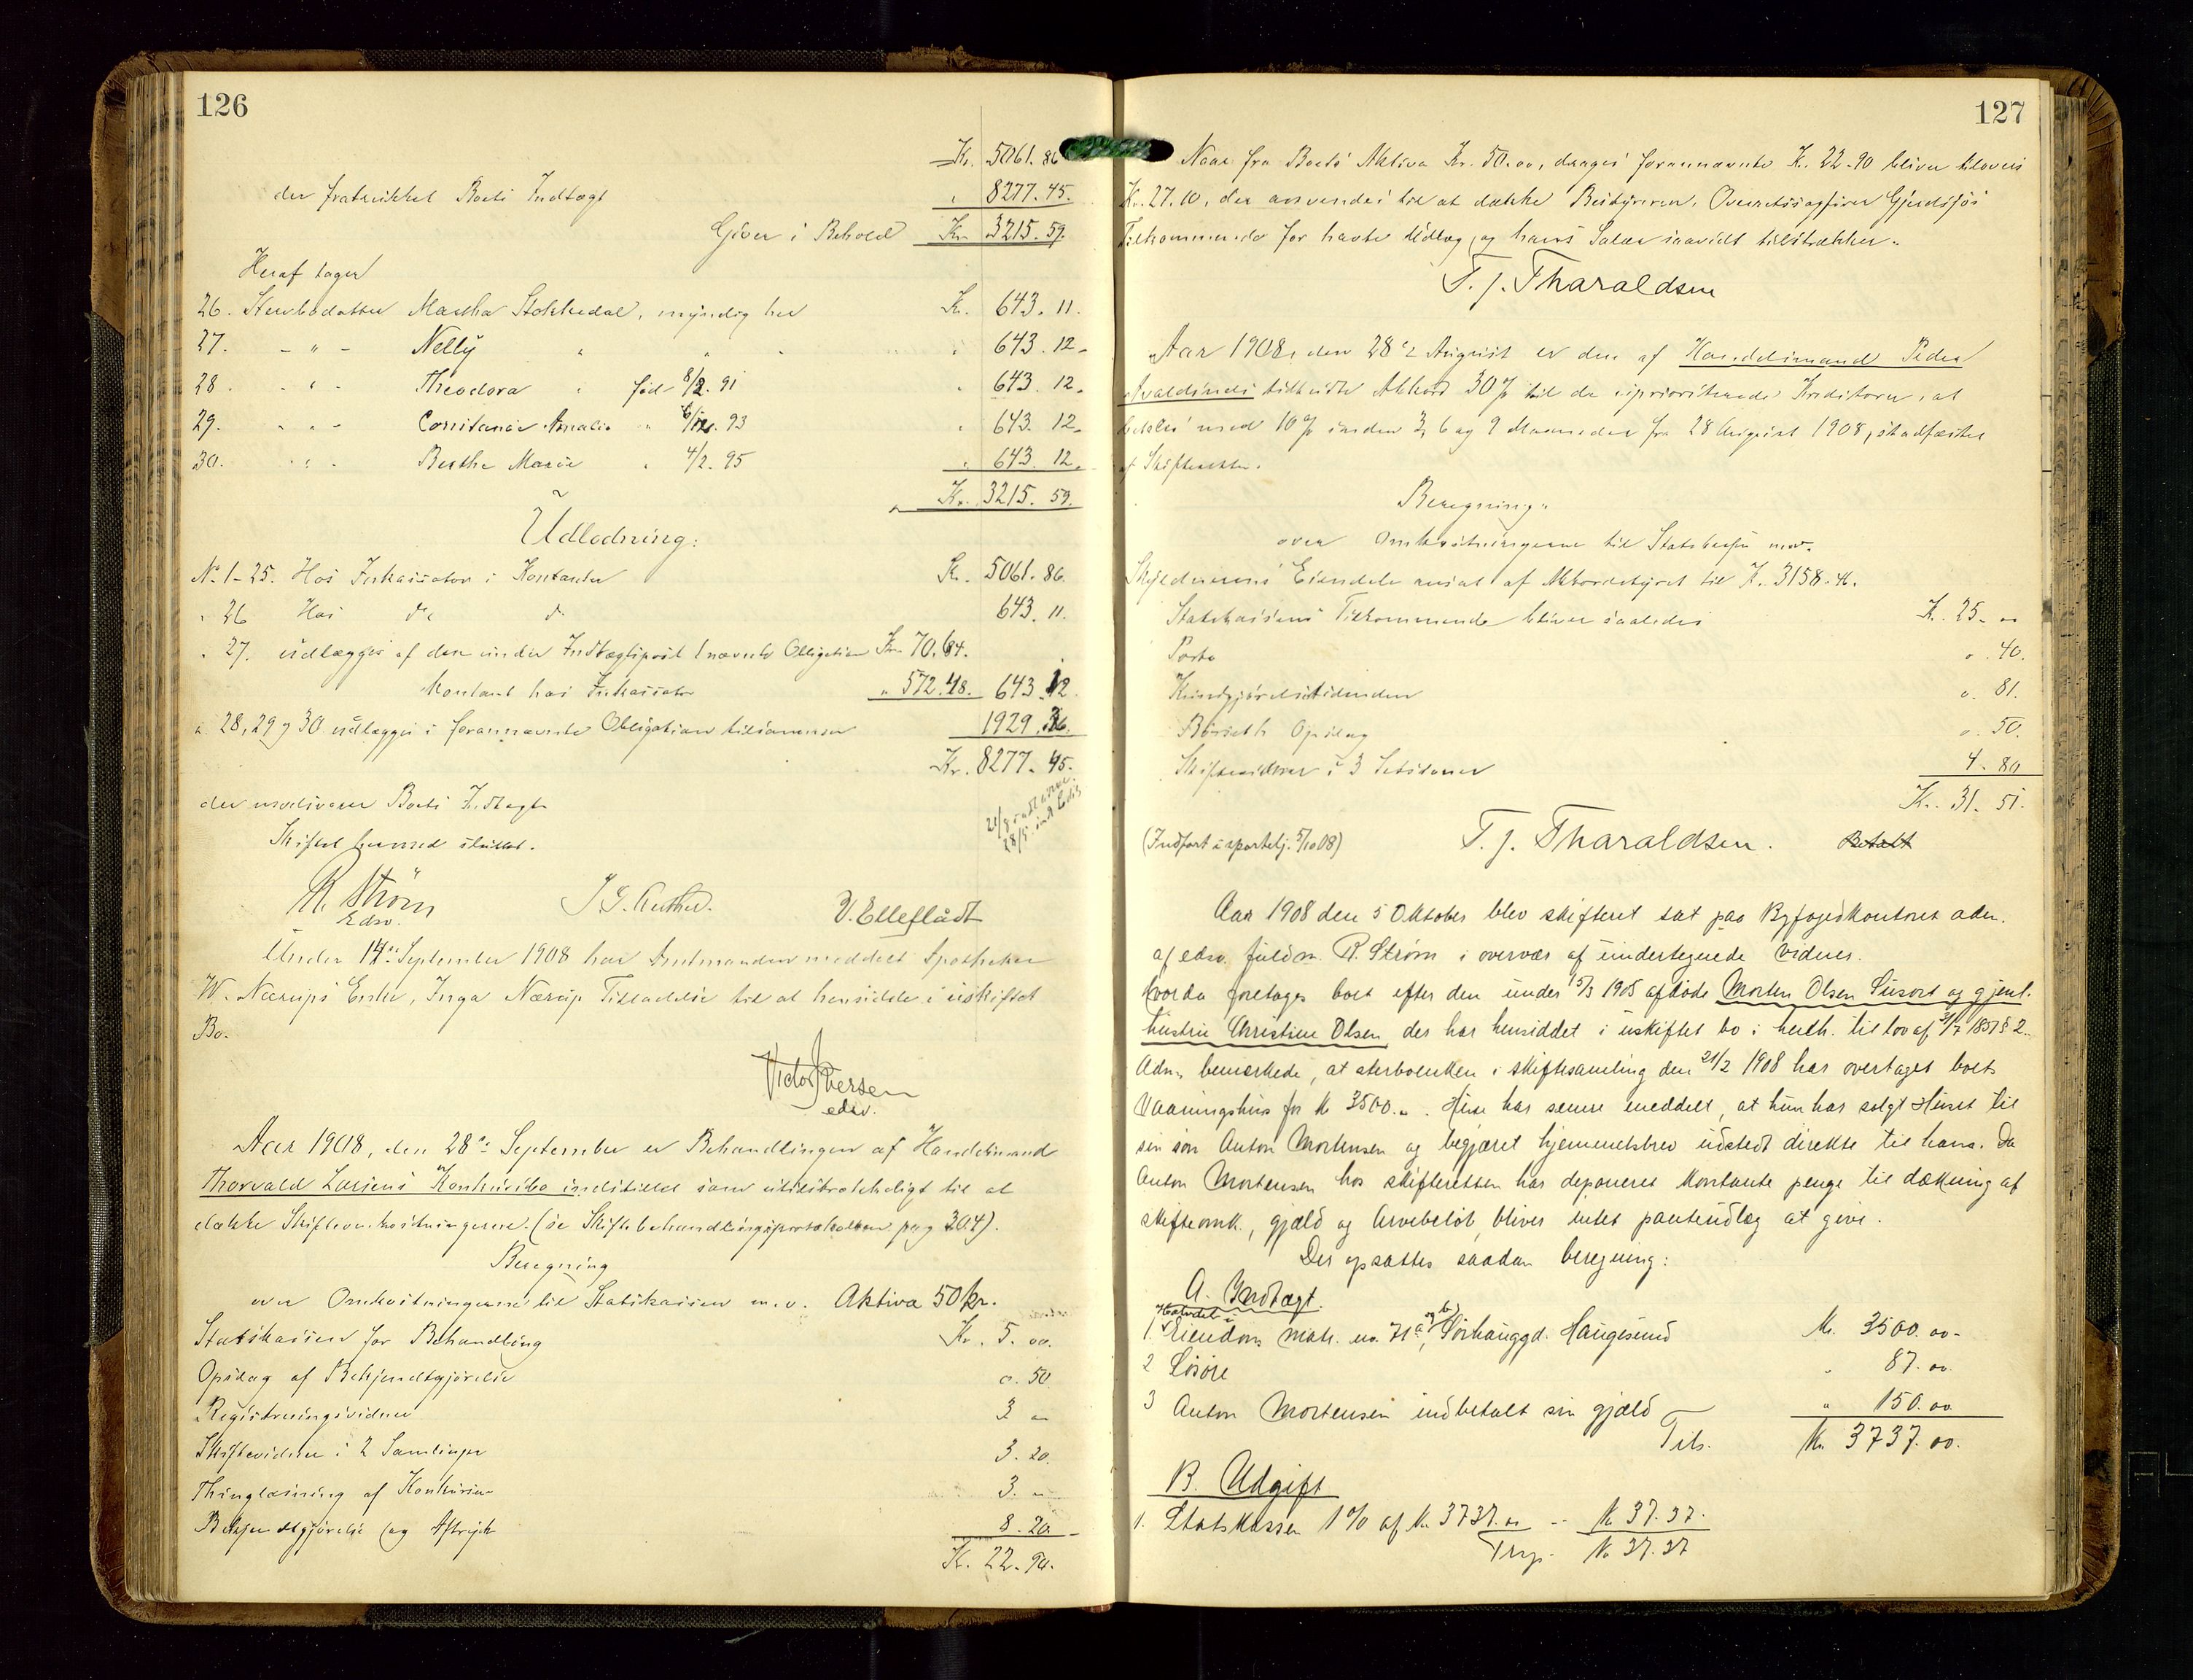 126
Kr. 5061. 86
der fratrukket Boets Indtægt " 8277. 45.
Giver i Behold Kr. 3215. 59.
Heraf tager
26. Stervbodatter Martha Stokkedal, myndig her Kr. 643. 11.
27. - " - Nelly " " 643. 12.
28. - " - Theodora " fød 8/2. 91 " 643. 12.
29. - " - Constance Amalie " 6/12. 93 " 643. 12.
30. - " - Berthe Marie " 4/2. 95 " 643. 12.
Kr. 3215. 59.
Udlodning:
No 1-25. Hos Inkassator i Kontanter Kr. 5061. 86.
" 26 Hos do do 643. 11.
" 27. udlægges af den under Indtægtspost 1 nævnte Obligation Kr. 70.64.
Kontant hos Inkassator " 572.48. 643.12.
" 28, 29 & 30 udlægges i forannævnte Obligation tilsammen 1929.36.
Kr. 8277. 45.
der modsvarer Boets Indtægt
Skiftet hermed sluttet.
R. Strøm
Edsv.
V. Elleflådt
Under 14de September 1908 har Amtmanden meddelt Apotheker
W. Nærups Enke, Inga Nærup Tilladelse til at hensidde i uskiftet
Bo.
Victor Iversen
edsv.
Aar 1908, den 28de September er Behandlingen af Handelsmand
Thorvald Larsens Konkursbo indstillet som utilstrækkeligt til at
dække Skifteomkostningerne. (se Skiftebehandlingsprotokollen pag 304).
Beregning
over Omkostningerne til Statskassen m.v. Aktiva 50 kr.
Statskassen for Behandling Kr. 5. 00.
Opslag af Bekjendtgjørelse 0. 50.
Registreringsvidner 3 "
Skiftevidner i 2 Samlinger 3. 20.
Thinglæsning af Konkursen 3. "
Bekjendtgjørelse og Aftryk 8. 20
Kr. 22. 90.
127
Naar fra Boets Aktiva Kr. 50.00, drages forannævnte Kr. 22.90 bliver tilovers
Kr. 27.10, der anvendes til at dække Bestyreren, Overretssagfører Gjerdsjøs
Tilkommende for havte Udlæg, og hans Salær saavidt tilstrækker.
T. J. Tharaldsen
Aar 1908, den 28de August er den af Handelsmand Peder
Avaldsnes tilbudte Akkord 30 % til de uprioriterede Kreditorer, at
betales med 10 % inden 3, 6 og 9 Maaneder fra 28 August 1908, stadfæstet
af Skifteretten.
Beregning
over Omkostningerne til Statskassen m.v.
Skyldnerens Eiendele ansat af Akkordstyret til K. 3158.46.
Statskassens Tilkommende bliver saaledes K. 25. 00
Porto 0. 40.
Kundgjørelsestidenden 0. 81.
Opslag 0. 50.
Skiftevidner i 3 Sessioner 4. 80
Kr. 31. 51.
(Indført i sportelj. 5/10 08) T. J. Tharaldsen. Betalt
Aar 1908 den 5 Oktober blev skifteret sat paa Byfogedkontoret adm.
af edsv. fuldm. R. Strøm i overvær af undertegnede vidner.
Hvorda foretoges boet efter den under 15/3 1905 afdøde Morten Olsen Susort og gjenl.
hustru Christine Olsen, der har hensiddet i uskiftet bo i henh. til lov af 31/7 1851 § 2.
Adm. bemærkede, at sterboenken i skiftesamling den 21/2 1908 har overtaget boets
Vaaningshus for kr 3500.00. Hun har senere meddelt, at hun har solgt Huset til
sin søn Anton Mortensen og begjæret hjemmelsbrev udstedt direkte til ham. Da
Anton Mortensen hos skifteretten har deponeret kontante penge til dækning af
skifteomk., gjæld og Arvebeløb, bliver intet panteudlæg at give.
Der opsattes saadan beregning:
A. Indtægt.
Halvdel i
1. Eiendom matr. no. 71 a og b, Sørhauggd. Haugesund Kr. 3500.00-
2 Løsøre " 87.00
3 Anton Mortensen indbetalt sin gjæld " 150.00
Tils. Kr 3737.00.
B. Udgift
1. Statskassen 1 % af kr. 3737.00 -- Kr 37.37.
Trsp. Kr 37.37